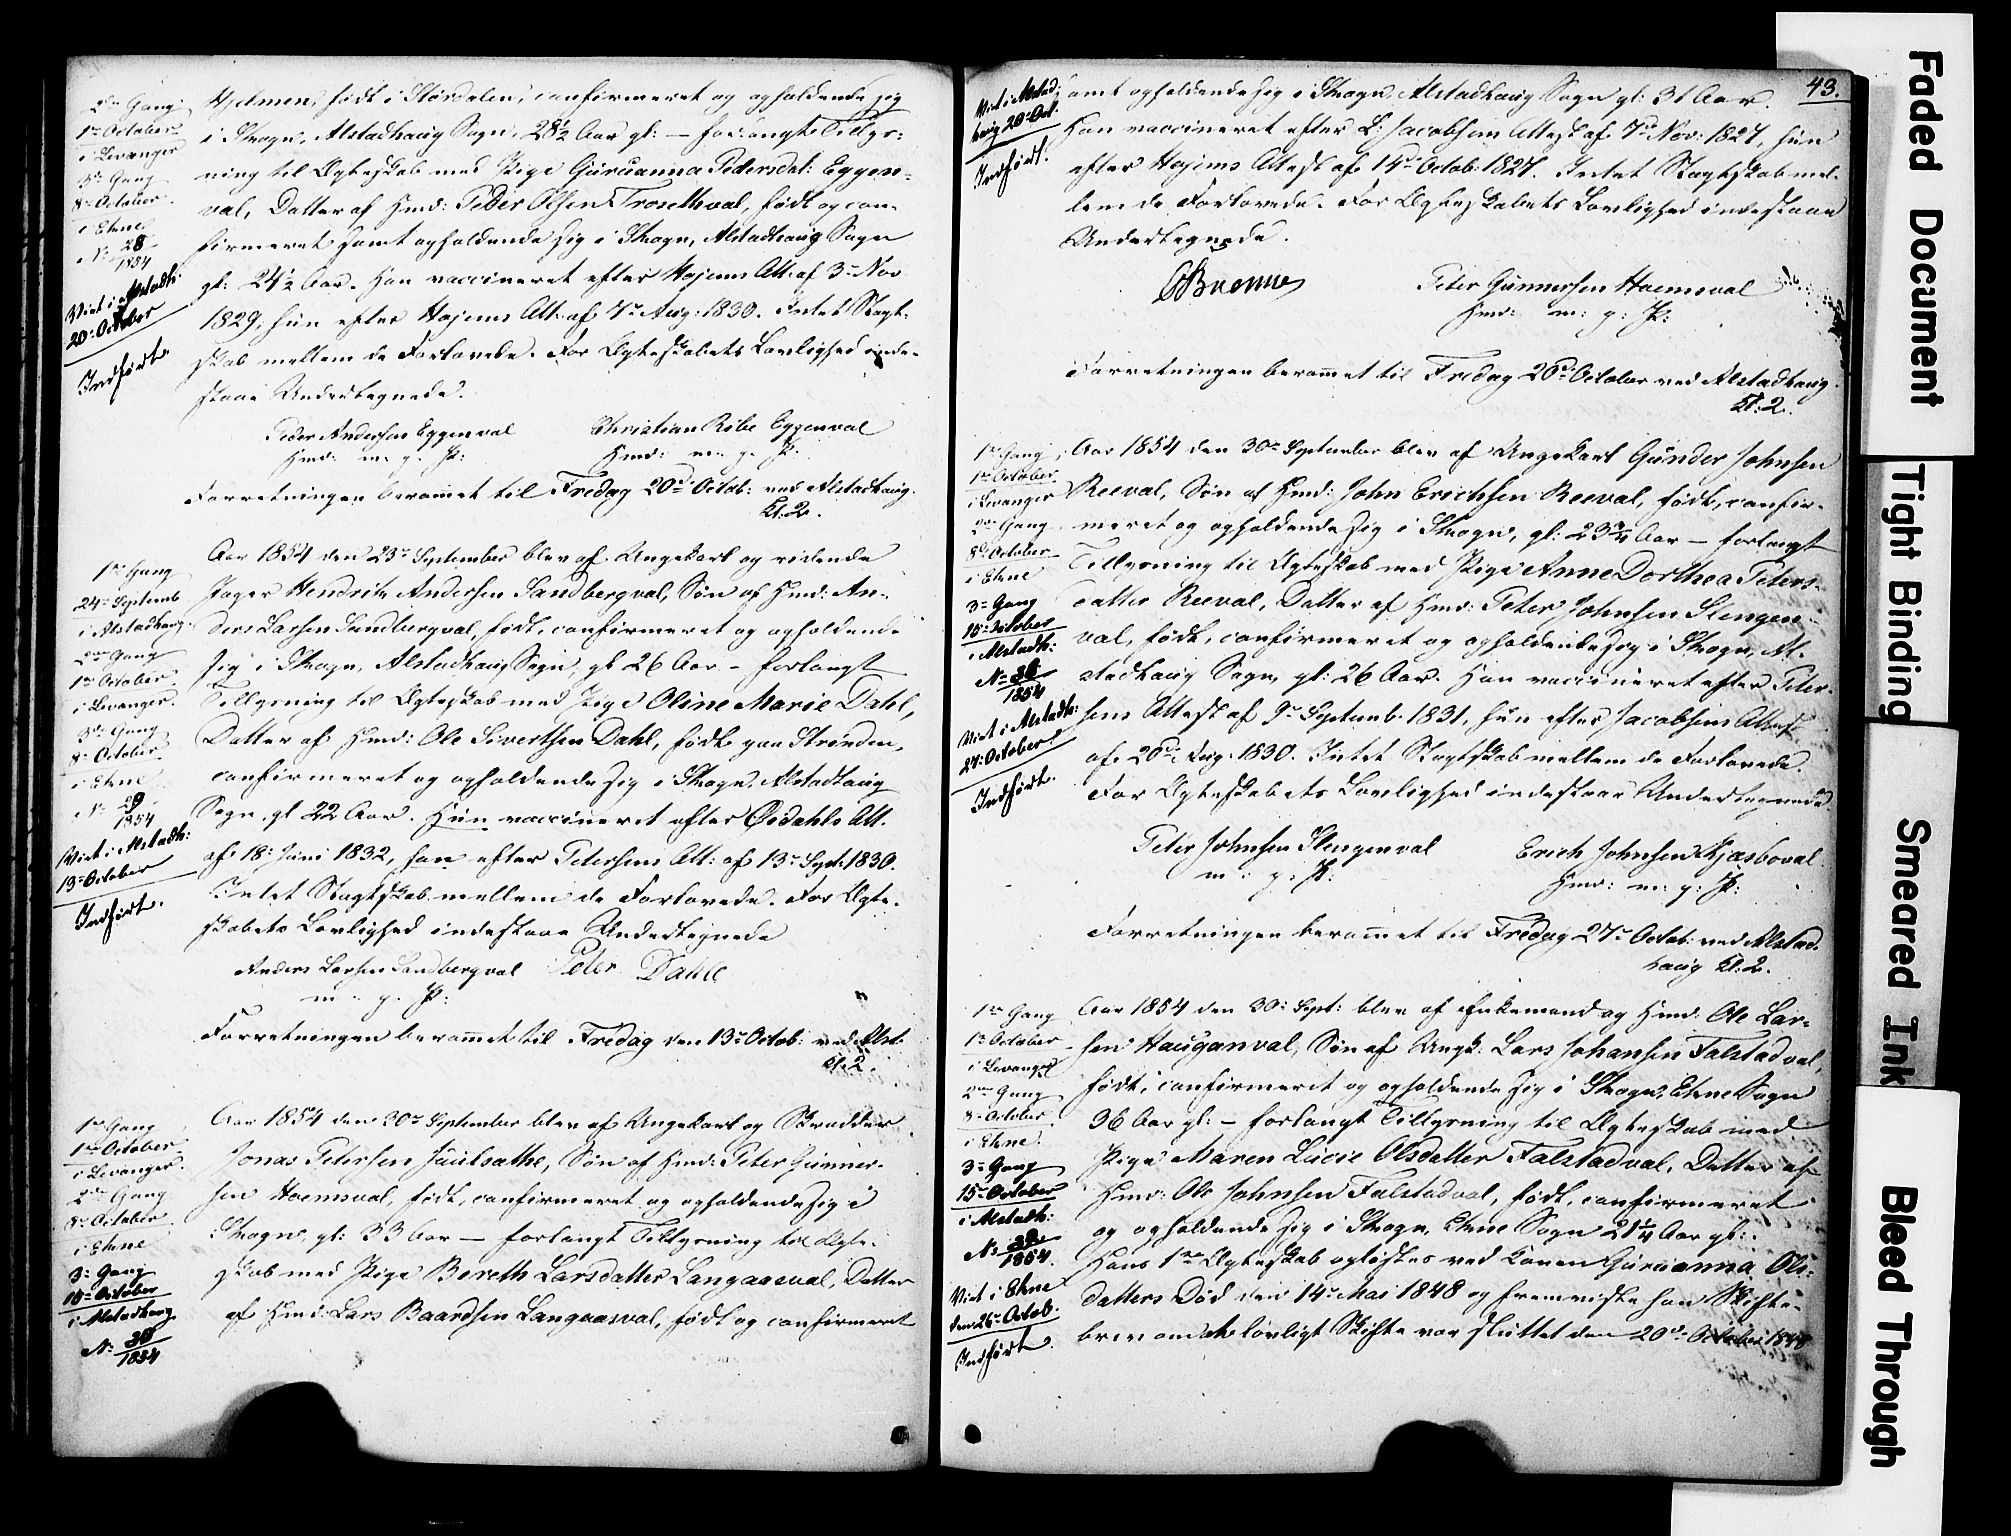 2den Gang
1ste October
i Levanger
3die Gang
8de October
i Ekne
No 28
1854
Viet i Alstadh:
20de October
Indført.
Hjelmen, født i Størdalen, confirmeret og opholdende sig
i Skogn, Alstadhaug Sogn, 28½ Aar gl: – forlangt Tillys-
ning til Ægteskab med Pige Guruanna Pedersdat: Eggen-
val, Datter af Hmd: Peder Olsen Trosethval, født og con-
firmeret samt opholdende sig i Skogn, Alstadhaug Sogn
gl: 24½ Aar. Han vaccineret efter Hojems Att: af 3de Nov
1829, hun efter Hojems Att: af 7de Aug: 1830. Intet Slægt-
skab mellem de Forlovede. For Ægteskabets Lovlighed inde-
staae Undertegnede.
Peder Andersen Eggenval
Christian Ribe Eggenval
Hmd: m. p. P:
Hmd: m. p. P:
Forretningen berammet til Fredag 20de Octob: ved Alstadhaug.
Kl. 2.
1ste Gang
24de Septemb
i Alstadhaug.
2den Gang
1ste October
i Levanger.
3die Gang
8de October
i Ekne
No 29
1854
Viet i Alstadh:
13de October
Indført.
Aar 1854 den 23de September blev af Ungekarl og ridende
Jæger Hendrik Andersen Sandbergval, Søn af Hmd: An-
ders Larsen Sandbergval, født, confirmeret og opholdende
sig i Skogn, Alstadhaug Sogn, gl 26 Aar – forlangt
Tillysning til Ægteskab med Pige Oline Marie Dahl,
Datter af Hmd: Ole Sivertsen Dahl, født paa Strinden,
confirmeret og opholdende sig i Skogn, Alstadhaug
Sogn, gl 22 Aar. Hun vaccineret efter Øsdahls Att.
af 18de Juni 1832, han efter Petersens Att: af 13de Sept: 1830.
Intet Slægtskab mellem de Forlovede. For Ægte-
skabets Lovlighed indestaae Undertegnede
Anders Larsen Sandbergval
Peter Dahle
m. p. P:
Forretningen berammet til Fredag den 13de Octob: ved Alst.
Kl. 2.
1ste Gang
1ste October
i Levanger.
2den Gang
8de October
i Ekne
3die Gang
15de October
i Alstadhaug
No 38
1854
Aar 1854 den 30te September blev af Ungekarl og Skrædder
Jonas Petersen Juulsathe, Søn af Hmd: Peter Gunner-
sen Hoemsval, født, confirmeret og opholdende sig i
Skogn, gl: 33 Aar – forlangt Tillysning til Ægte-
skab med Pige Bereth Larsdatter Langaasval, Datter
af Hmd: Lars Baardsen Langaasval, født og confirmeret
43.
Viet i Alstad-
haug 20de Oct.
Indført.
samt opholdende sig i Skogn, Alstadhaug Sogn gl: 31 Aar.
Han vaccineret efter L: Jacobsens Attest af 7de Nov: 1827, hun
efter Hojems Attest af 14de Octob: 1827. Intet Slægtskab mel-
lem de Forlovede. For Ægteskabets Lovlighed indestaae
Undertegnede.
Peter Gunnersen Hoemsval
Hmd: m: p: P:
Forretningen berammet til Fredag 20de October ved Alstadhaug.
Kl. 2.
1ste Gang
1ste October
i Levanger
2den Gang
8de October
i Ekne
3die Gang
15de October
i Alstadh:
No 36
1854
Viet i Alstadh:
27de October
Indført.
Aar 1854 den 30te September blev af Ungekarl Gunder Johnsen
Reeval, Søn af Hmd: John Erichsen Reeval, født, confir-
meret og opholdende sig i Skogn, gl: 23¾ Aar – forlangt
Tillysning til Ægteskab med Pige Anne Dorthea Peters-
datter Reeval, Datter af Hmd: Peter Johnsen Slengen-
val, født, confirmeret og opholdende sig i Skogn, Al-
stadhaug Sogn, gl: 26 Aar. Han vaccineret efter Peter-
sens Attest af 9de Septemb: 1831, hun efter Jacobsens Attest
af 20de Aug: 1830. Intet Slægtskab mellem de Forlovede.
For Ægteskabets Lovlighed indestaae Undertegnede.
Peter Johnsen Slengenval
Erich Johnsen Kjæsboval
m: p: P:
Hmd: m: p: P:
Forretningen berammet til Fredag 27de Octob: ved Alstad-
haug Kl. 2.
1ste Gang
1ste October
i Levanger
2den Gang
8de October
i Ekne.
3die Gang
15de October
i Alstadh:
No 39
1854.
Viet i Ekne
den 26de Octob:
Indført.
Aar 1854 den 30te Sept: blev af Enkemand og Hmd: Ole Lar-
sen Hauganval, Søn af Ungk: Lars Johansen Falstadval,
født, confirmeret og opholdende sig i Skogn, Ekne Sogn
36 Aar gl: – forlangt Tillysning til Ægteskab med
Pige Maren Lucie Olsdatter Falstadval, Datter af
Hmd: Ole Johnsen Falstadval, født, confirmeret
og opholdende sig i Skogn, Ekne Sogn 21¼ Aar gl:
Hans 1ste Ægteskab opløstes ved Konen Guruanna Ols-
datters Død den 14de Mai 1848 og fremviste han Skifte-
brev om at lovligt Skifte var sluttet den 20de October 1848
Faded Document
Tight Binding
Smeared Ink
Bleed Through